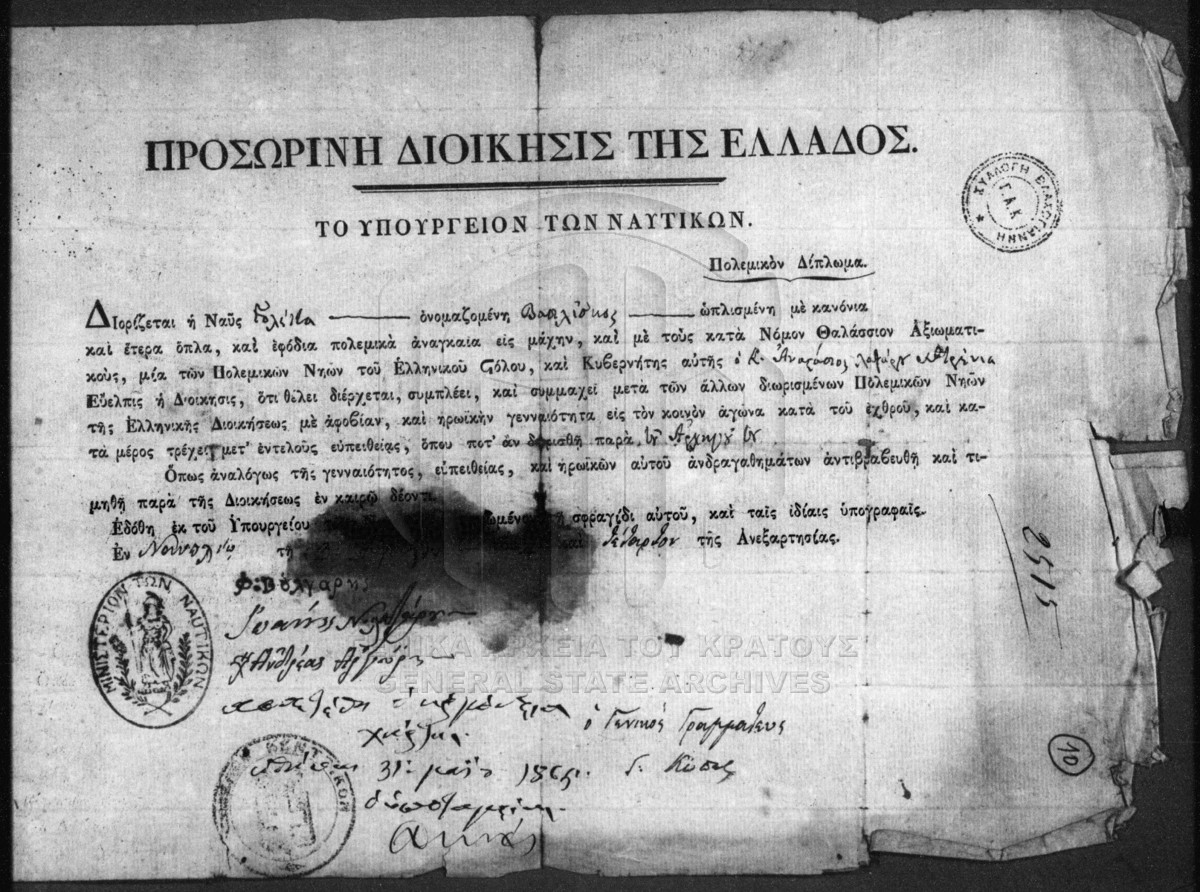 ΠΡΟΣΩΡΙΝΗ ΔΙΟΙΚΗΣΙΣ ΤΗΣ ΕΛΛΑΔΟΣ.
ΤΟ ΥΠΟΥΡΓΕΙΟΝ ΤΩΝ ΝΑΥΤΙΚΩΝ.
ΣΥΛΛΟΓΗ ΒΛΑΧΟΓΙΑΝΝΗ
Γ.Α.Κ
Πολεμικὸν Δίπλωμα.
Διορίζεται ἡ Ναῦς Γολέττα ὀνομαζομένη Βασιλίσκος ὡπλισμένη μὲ κανόνια
καὶ ἕτερα ὅπλα, καὶ ἐφόδια πολεμικὰ ἀναγκαῖα εἰς μάχην, καὶ μὲ τοὺς κατὰ Νόμον Θαλάσσιον Ἀξιωματι-
κοὺς, μία τῶν Πολεμικῶν Νηῶν τοῦ Ἑλληνικοῦ Στόλου, καὶ Κυβερνήτης αὐτῆς ὁ Κ.
Εὔελπις ἡ Διοίκησις, ὅτι θέλει διέρχεται, συμπλέει, καὶ συμμαχεῖ μετὰ τῶν ἄλλων διωρισμένων Πολεμικῶν Νηῶν
τῆς Ἑλληνικῆς Διοικήσεως μὲ ἀφοβίαν, καὶ ἡρωϊκὴν γενναιότητα εἰς τὸν κοινὸν ἀγῶνα κατὰ τοῦ ἐχθροῦ, καὶ κα-
τὰ μέρος τρέχει μετ' ἐντελοῦς εὐπειθείας, ὅπου ποτ' ἂν διορισθῇ παρὰ
Ὅπως ἀναλόγως τῆς γενναιότητος, εὐπειθείας, καὶ ἡρωϊκῶν αὐτοῦ ἀνδραγαθημάτων ἀντιβραβευθῇ καὶ τι-
μηθῇ παρὰ τῆς Διοικήσεως ἐν καιρῷ δέοντι.
Ἐδόθη ἐκ τοῦ Ὑπουργείου σφραγίδι αὐτοῦ, καὶ ταῖς ἰδίαις ὑπογραφαῖς.
Ἐν τῇ καὶ τέταρτον τῆς Ἀνεξαρτησίας.
2515
Φ: Βόλγαρης
ΜΙΝΙΣΤΕΡΙΟΝ ΤΩΝ ΝΑΥΤΙΚΩΝ
Ἰωάννης
Ἀνδρέας
ΓΕΝΙΚΑ ΑΡΧΕΙΑ ΤΟΥ ΚΡΑΤΟΥΣ
GENERAL STATE ARCHIVES
ὁ Γενικὸς Γραμματεὺς
31 μαΐου 1865.
10